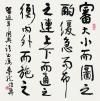 審大小而圖之
酌緩急而布
之連上下而通之
衡内外而施之